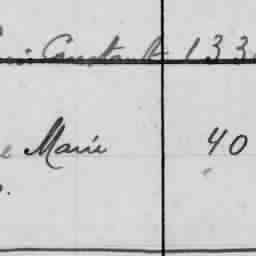 Constant 133
Marie 40